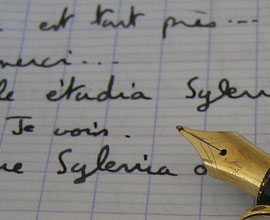 est tout près...
merci...
le étudia Sylenia
Je vois.
ne Sylenia o